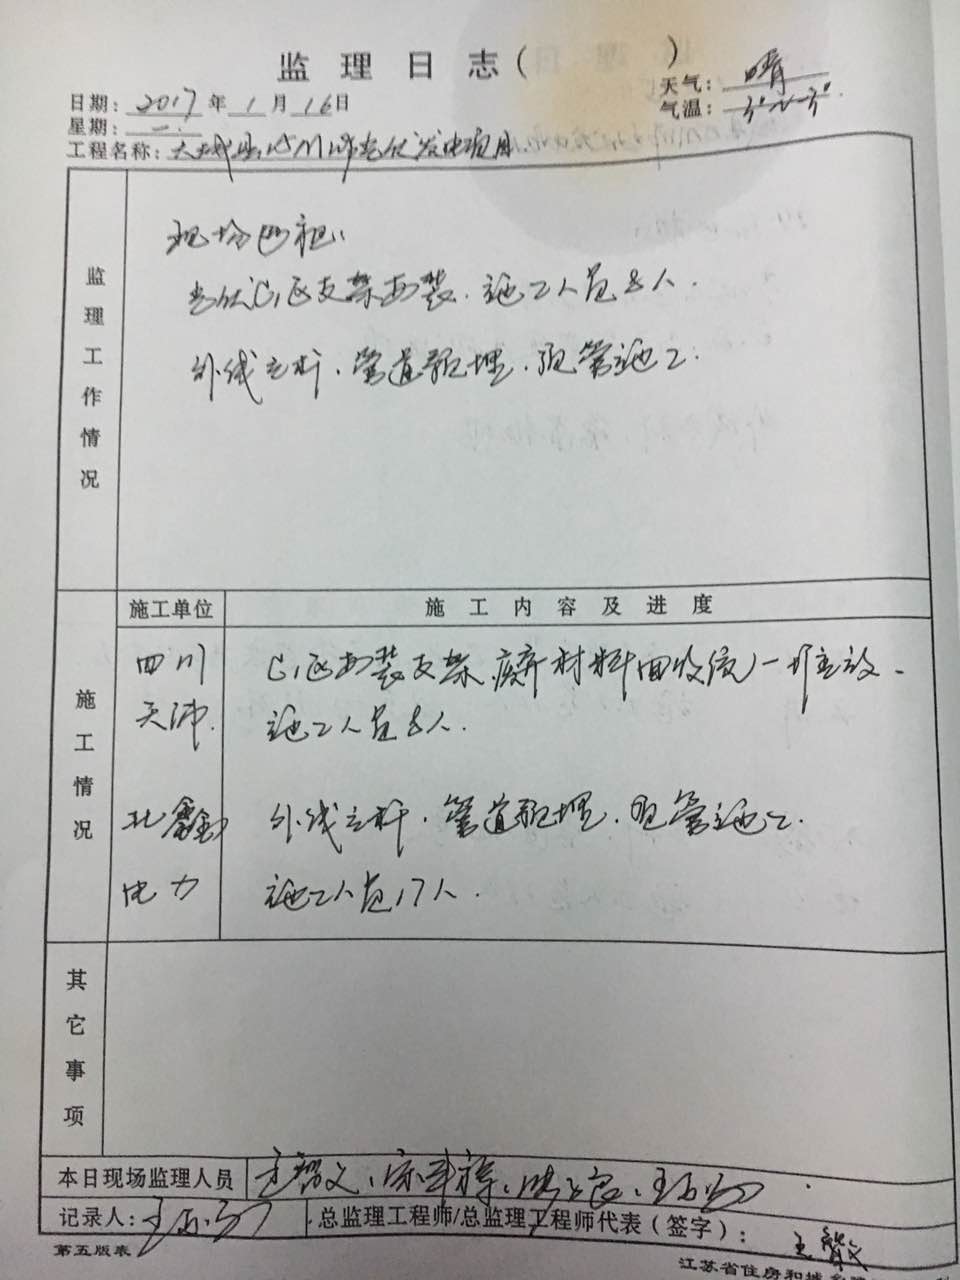 监理日志( )
日期: 2017年1月16日 天气: 晴
星期: 一. 气温: 3°~-3°.
工程名称: 光伏发电项目
监理工作情况
现场巡视:
光伏C1区支架安装. 施工人员8人.
外线立杆. 管道预埋. 顶管施工.
施工情况
施工单位 施工内容及进度
四川 C1区安装支架. 废弃材料回收统一堆放.
施工人员8人.
北鑫 外线立杆. 管道预埋. 顶管施工.
电力 施工人员17人.
其它事项
本日现场监理人员
记录人: 总监理工程师/总监理工程师代表(签字):
第五版表 江苏省住房和城乡